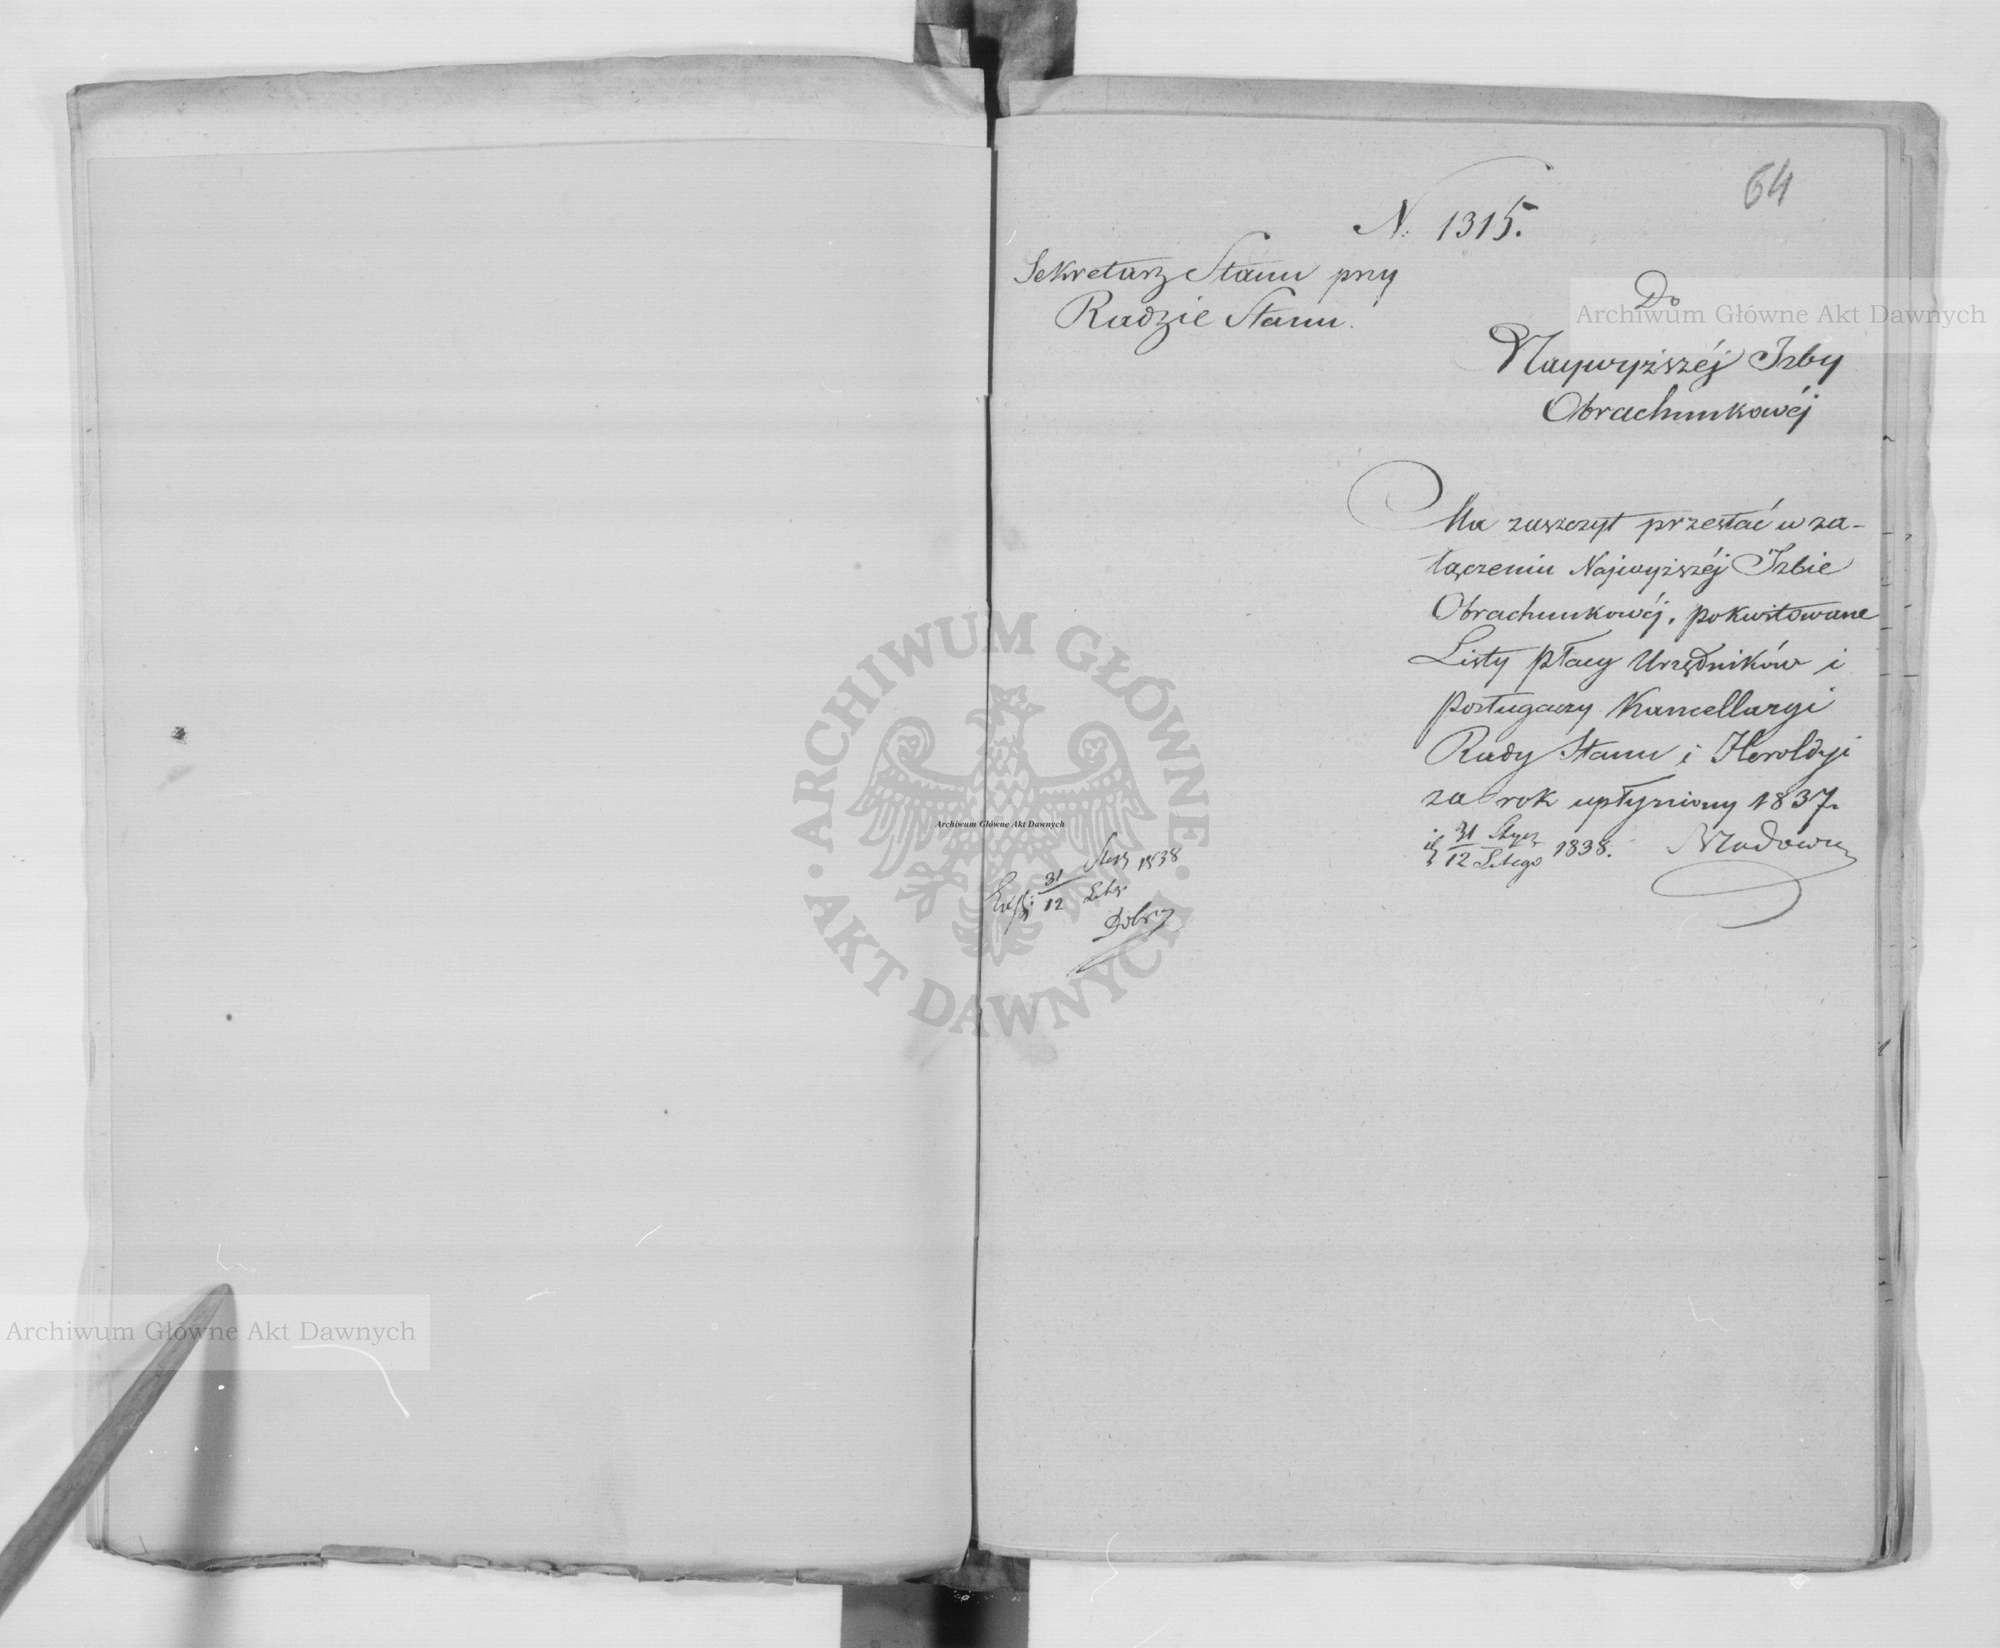 64
N. 1315.
Sekretarz Stanu przy
Radzie Stanu.
Do
Naywyższéj Izby
Obrachunkowéj
Ma zaszczyt przesłać w za-
łączeniu Najwyższéj Izbie
Obrachunkowéj, pokwitowane
Listy płacy Urzędników i
Posługaczy Kancellaryi
Rady Stanu i Heroldyi
za rok upłyniony 1837.
31 Stycz
12 Lutego 1838.
31 Stycz 1838
12 Lutg
Archiwum Główne Akt Dawnych
Archiwum Główne Akt Dawnych
Archiwum Główne Akt Dawnych
ARCHIWUM GŁÓWNE
AKT DAWNYCH